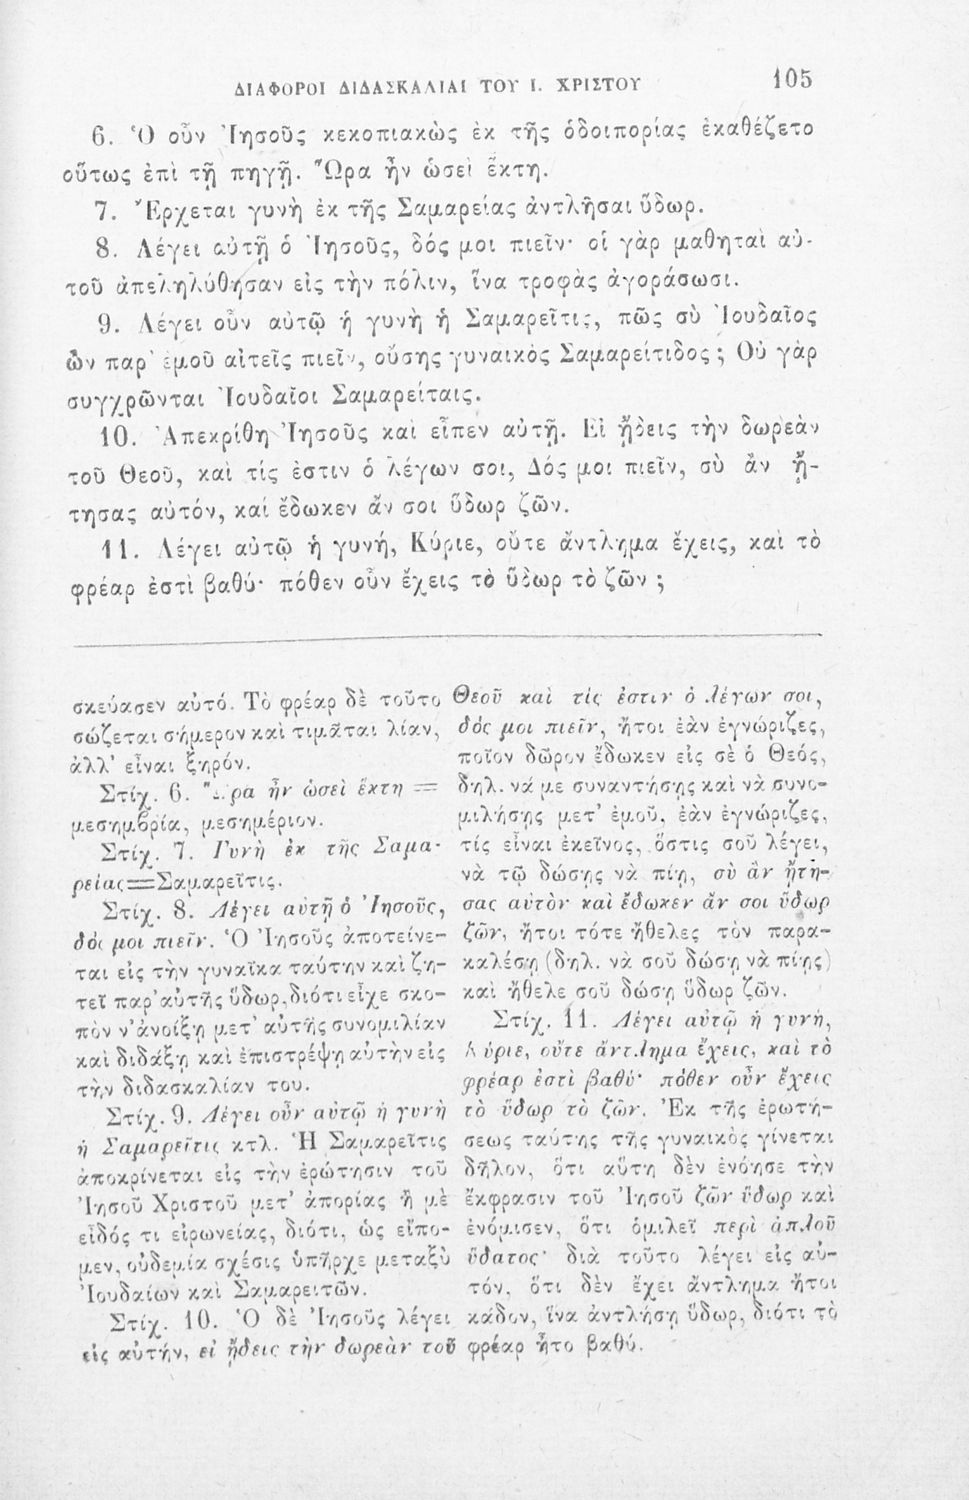 ΔΙΑΦΟΡΟΙ ΔΙΔΑΣΚΑΛΙΑΙ ΤΟΥ Ι. ΧΡΙΣΤΟΥ 105
6. Ὁ οὖν Ἰησοῦς κεκοπιακὼς ἐκ τῆς ὁδοιπορίας ἐκαθέζετο
οὕτως ἐπὶ τῇ πηγῇ. Ὥρα ἦν ὡσεὶ ἕκτη.
7. Ἔρχεται γυνὴ ἐκ τῆς Σαμαρείας ἀντλῆσαι ὕδωρ.
8. Λέγει αὐτῇ ὁ Ἰησοῦς, δός μοι πιεῖν· οἱ γὰρ μαθηταὶ αὐ-
τοῦ ἀπεληλύθησαν εἰς τὴν πόλιν, ἵνα τροφὰς ἀγοράσωσι.
9. Λέγει οὖν αὐτῷ ἡ γυνὴ ἡ Σαμαρεῖτις, πῶς σὺ Ἰουδαῖος
ὢν παρ' ἐμοῦ αἰτεῖς πιεῖν, οὔσης γυναικὸς Σαμαρείτιδος; Οὐ γὰρ
συγχρῶνται Ἰουδαῖοι Σαμαρείταις.
10. Ἀπεκρίθη Ἰησοῦς καὶ εἶπεν αὐτῇ. Εἰ ᾔδεις τὴν δωρεὰν
τοῦ Θεοῦ, καὶ τίς ἐστιν ὁ λέγων σοι, Δός μοι πιεῖν, σὺ ἂν ᾔ-
τησας αὐτόν, καὶ ἔδωκεν ἄν σοι ὕδωρ ζῶν.
11. Λέγει αὐτῷ ἡ γυνή, Κύριε, οὔτε ἄντλημα ἔχεις, καὶ τὸ
φρέαρ ἐστὶ βαθύ· πόθεν οὖν ἔχεις τὸ ὕδωρ τὸ ζῶν;
σκεύασεν αὐτό. Τὸ φρέαρ δὲ τοῦτο
σώζεται σήμερον καὶ τιμᾶται λίαν,
ἀλλ' εἶναι ξηρόν.
Στίχ. 6. Ὥρα ἦν ὡσεὶ ἕκτη =
μεσημβρία, μεσημέριον.
Στίχ. 7. Γυνὴ ἐκ τῆς Σαμα-
ρείας=Σαμαρεῖτις.
Στίχ. 8. Λέγει αὐτῇ ὁ Ἰησοῦς,
δός μοι πιεῖν. Ὁ Ἰησοῦς ἀποτείνε-
ται εἰς τὴν γυναῖκα ταύτην καὶ ζη-
τεῖ παρ' αὐτῆς ὕδωρ, διότι εἶχε σκο-
πὸν ν' ἀνοίξῃ μετ' αὐτῆς συνομιλίαν
καὶ διδάξῃ καὶ ἐπιστρέψῃ αὐτὴν εἰς
τὴν διδασκαλίαν του.
Στίχ. 9. Λέγει οὖν αὐτῷ ἡ γυνὴ
ἡ Σαμαρεῖτις κτλ. Ἡ Σαμαρεῖτις
ἀποκρίνεται εἰς τὴν ἐρώτησιν τοῦ
Ἰησοῦ Χριστοῦ μετ' ἀπορίας ἢ μὲ
εἶδός τι εἰρωνείας, διότι, ὡς εἴπο-
μεν, οὐδεμία σχέσις ὑπῆρχε μεταξὺ
Ἰουδαίων καὶ Σαμαρειτῶν.
Στίχ. 10. Ὁ δὲ Ἰησοῦς λέγει
εἰς αὐτήν, εἰ ᾔδεις τὴν δωρεὰν τοῦ
Θεοῦ καὶ τίς ἐστιν ὁ λέγων σοι,
δός μοι πιεῖν, ἤτοι ἐὰν ἐγνώριζες,
ποῖον δῶρον ἔδωκεν εἰς σὲ ὁ Θεός,
δηλ. νά με συναντήσῃς καὶ νὰ συνο-
μιλήσῃς μετ' ἐμοῦ, ἐὰν ἐγνώριζες,
τίς εἶναι ἐκεῖνος, ὅστις σοῦ λέγει,
νὰ τῷ δώσῃς νὰ πίῃ, σὺ ἂν ᾔτη-
σας αὐτὸν καὶ ἔδωκεν ἄν σοι ὕδωρ
ζῶν, ἤτοι τότε ἤθελες τὸν παρα-
καλέσῃ (δηλ. νὰ σοῦ δώσῃ νὰ πίῃς)
καὶ ἤθελε σοῦ δώσῃ ὕδωρ ζῶν.
Στίχ. 11. Λέγει αὐτῷ ἡ γυνή,
Κύριε, οὔτε ἄντλημα ἔχεις, καὶ τὸ
φρέαρ ἐστὶ βαθύ· πόθεν οὖν ἔχεις
τὸ ὕδωρ τὸ ζῶν. Ἐκ τῆς ἐρωτή-
σεως ταύτης τῆς γυναικὸς γίνεται
δῆλον, ὅτι αὕτη δὲν ἐνόησε τὴν
ἔκφρασιν τοῦ Ἰησοῦ ζῶν ὕδωρ καὶ
ἐνόμισεν, ὅτι ὁμιλεῖ περὶ ἁπλοῦ
ὕδατος· διὰ τοῦτο λέγει εἰς αὐ-
τόν, ὅτι δὲν ἔχει ἄντλημα ἤτοι
κάδον, ἵνα ἀντλήσῃ ὕδωρ, διότι τὸ
φρέαρ ἦτο βαθύ.